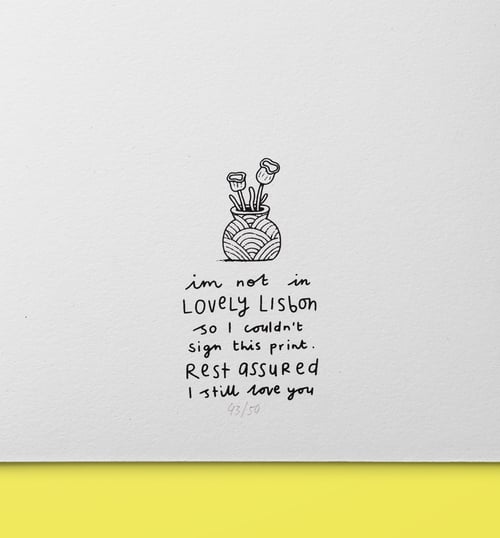 im not in
LOVELY LISBON
so I couldn't
sign this print.
Rest assured
I still love you
43/50